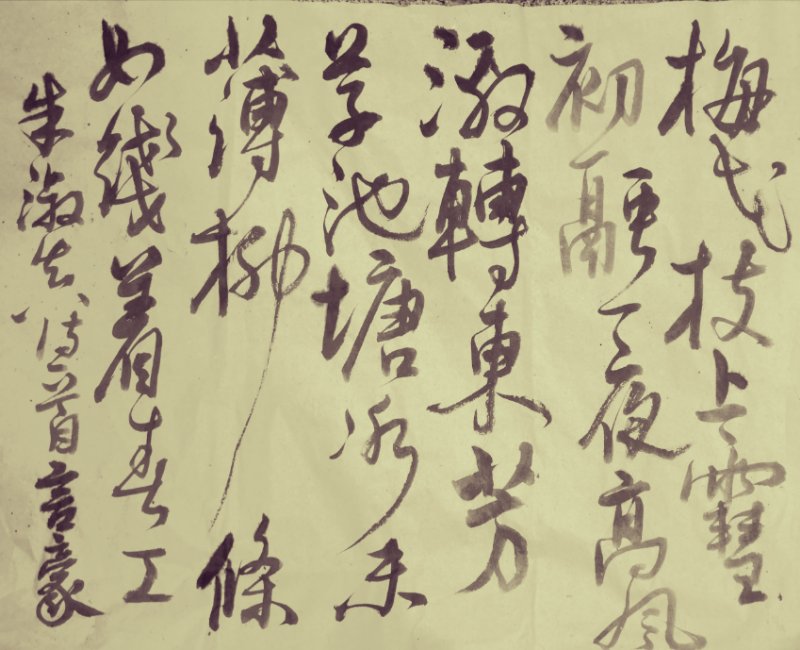 梅花枝上雪
初融一夜高風
激轉東芳
草池塘冰未
薄柳條
如綫着春工
朱淑真詩一首言豪